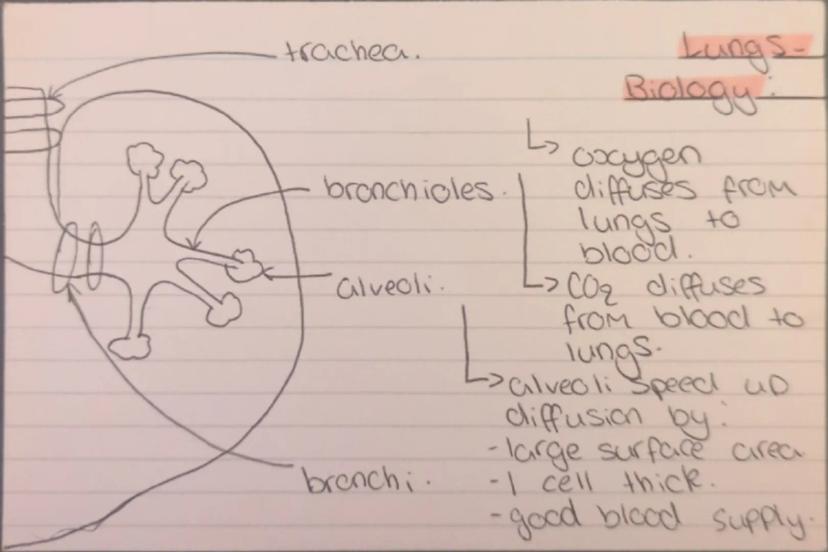 Lungs-
Biology:
trachea.
bronchioles.
alveoli.
bronchi.
↳ oxygen
diffuses from
lungs to
blood.
↳ CO₂ diffuses
from blood to
lungs.
↳ alveoli speed up
diffusion by:
- large surface area
- 1 cell thick.
- good blood supply.